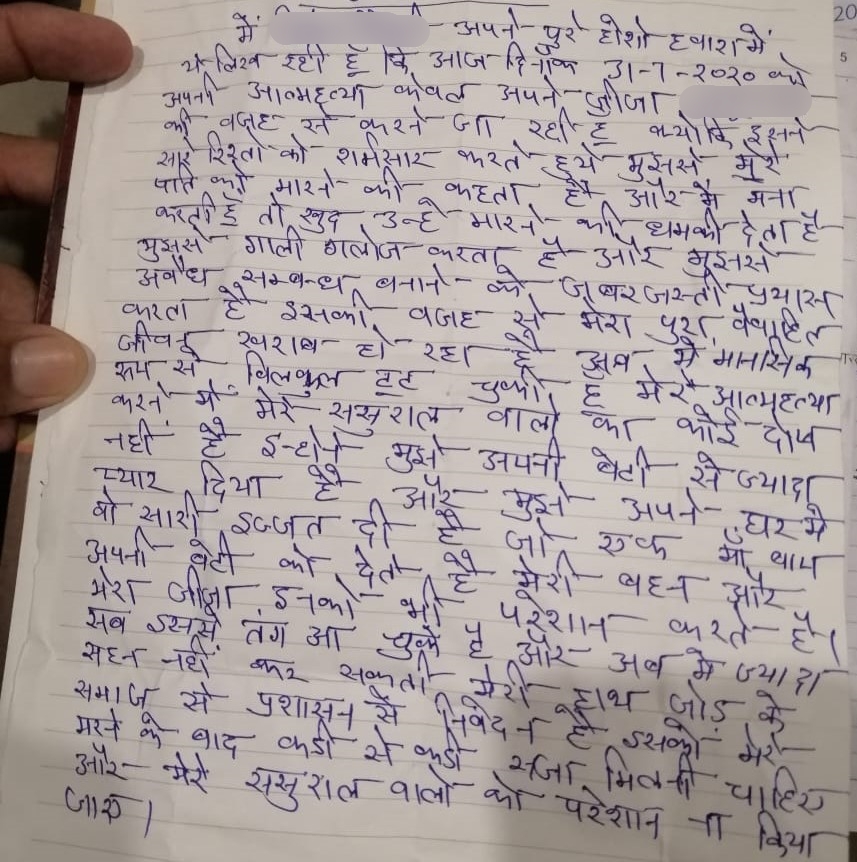 में अपने पुरे होशो हवाश में
ये लिख रही हूँ कि आज दिनाँक 31-7-2020 को
अपनी आत्महत्या केवल अपने जीजा
की वजह से करने जा रही हूँ क्योकि इसने
सारे रिश्तो को शर्मसार करते हुये मुझसे मेरे
पति को मारने को कहता है और मै मना
करती हूँ तो खुद उन्हे मारने की धमकी देता है
मुझसे गाली गलोज करता है और मुझसे
अवैध सम्बन्ध बनाने के जबरजस्ती प्रयास
करता है इसकी वजह से मेरा पुरा वैवाहित
जीवन खराब हो रहा है अब मै मानसिक
रूप से बिलकुल टूट चुकी हूँ मेरे आत्महत्या
करने में मेरे ससुराल वालो का कोई दोष
नही है इन्होने मुझे अपनी बेटी से ज्यादा
प्यार दिया है और मुझे अपने घर मे
वो सारी इज्जत दी है जो एक माँ बाप
अपनी बेटी को देते है मेरी बहन और
मेरा जीजा इनको भी परेशान करते है।
सब इससे तंग आ चुके है और अब मे ज्यादा
सहन नहीं कर सकती मेरी हाथ जोड़ के
समाज से प्रशासन से निवेदन है इसको मेरे
मरने के बाद कडी से कडी सजा मिलनी चाहिए
और मेरे ससुराल वालो को परेशान ना किया
जाए।
20
5